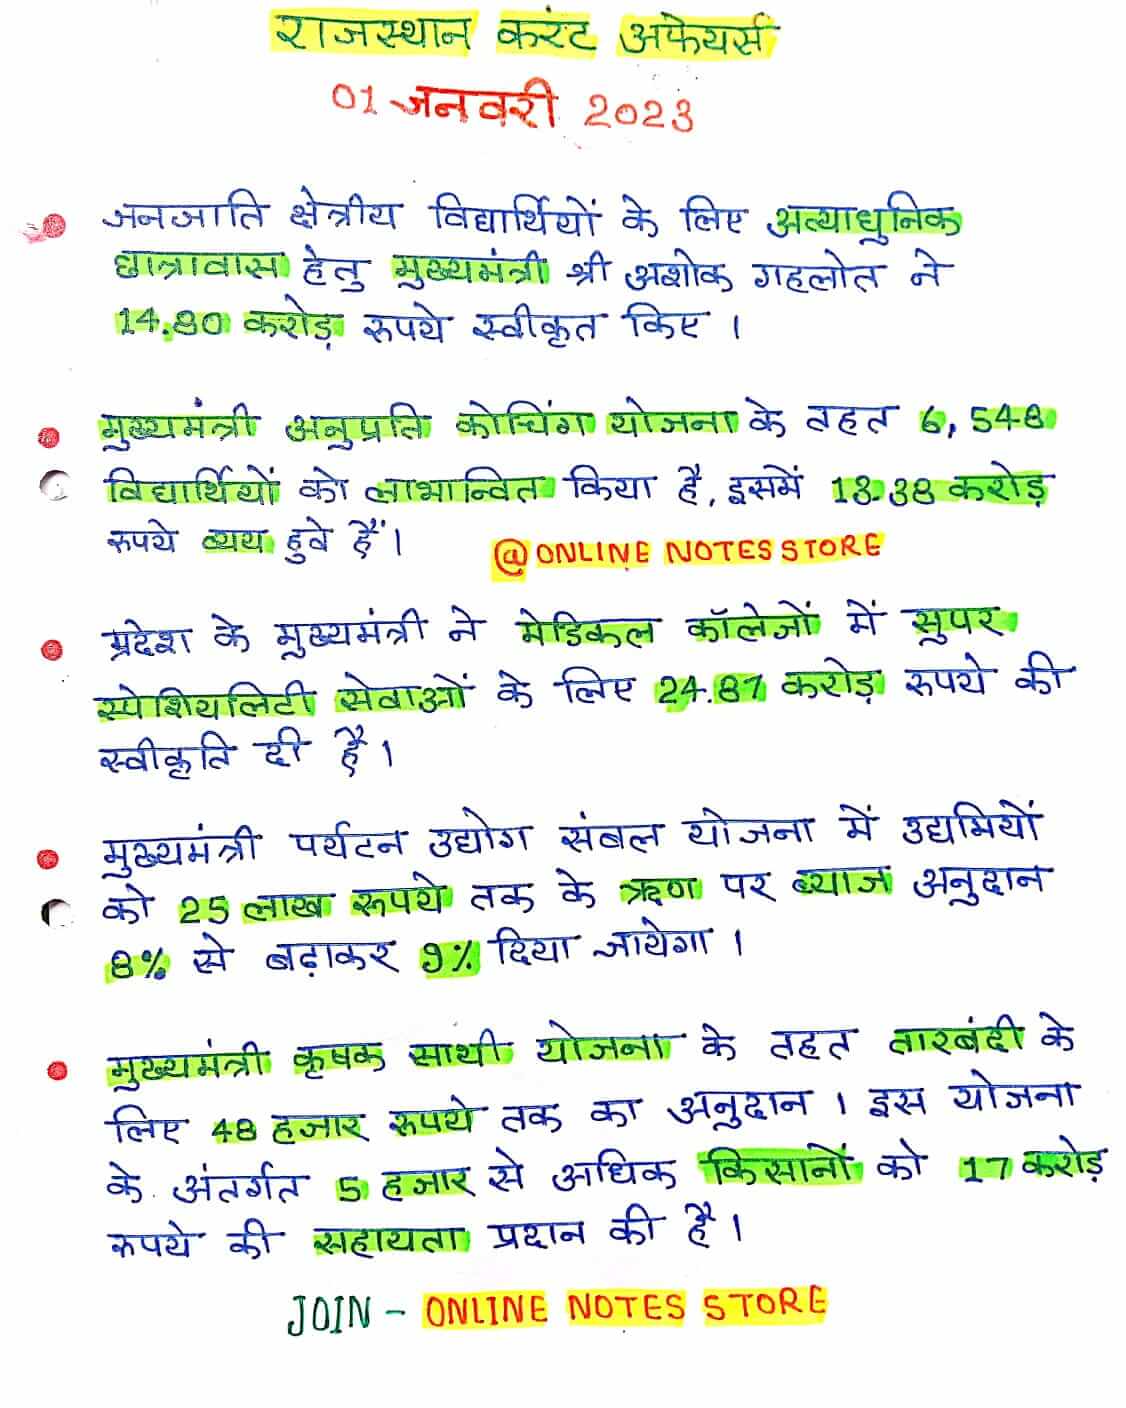 राजस्थान करंट अफेयर्स
01 जनवरी 2023
जनजाति क्षेत्रीय विद्यार्थियों के लिए अत्याधुनिक
छात्रावास हेतु मुख्यमंत्री श्री अशोक गहलोत ने
14.80 करोड़ रुपये स्वीकृत किए ।
मुख्यमंत्री अनुप्रति कोचिंग योजना के तहत 6,548
विद्यार्थियों को लाभान्वित किया है, इसमें 13.38 करोड़
रुपये व्यय हुवे हैं ।
@ ONLINE NOTES STORE
प्रदेश के मुख्यमंत्री ने मेडिकल कॉलेजों में सुपर
स्पेशियलिटी सेवाओं के लिए 24.87 करोड़ रुपये की
स्वीकृति दी है ।
मुख्यमंत्री पर्यटन उद्योग संबल योजना में उद्यमियों
को 25 लाख रूपये तक के ऋण पर ब्याज अनुदान
8% से बढ़ाकर 9% दिया जायेगा ।
मुख्यमंत्री कृषक साथी योजना के तहत तारबंदी के
लिए 48 हजार रूपये तक का अनुदान । इस योजना
के अंतर्गत 5 हजार से अधिक किसानों को 17 करोड़
रुपये की सहायता प्रदान की है ।
JOIN - ONLINE NOTES STORE